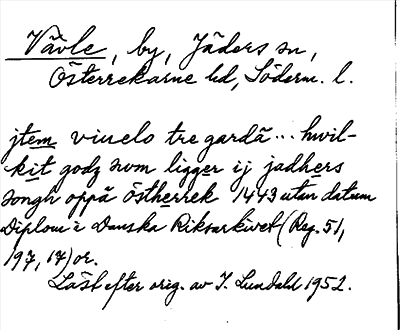 Vävle, by, Jäders sn,
Österrekarne hd, Söderm. l.
jtem viuelo tre gardā ... hwil-
kit godz som ligger ij jadhers
songh oppā östherrek 1443 utan datum
Diplom i Danska Riksarkivet (Reg. 51,
197, 17) or.
Läst efter orig. av I. Lundahl 1952.